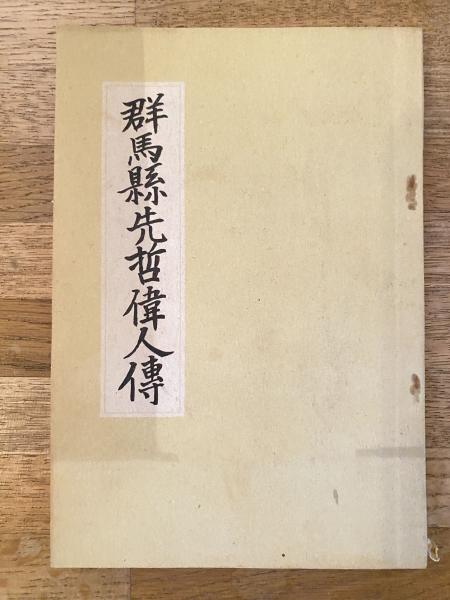 群馬縣先哲偉人傳